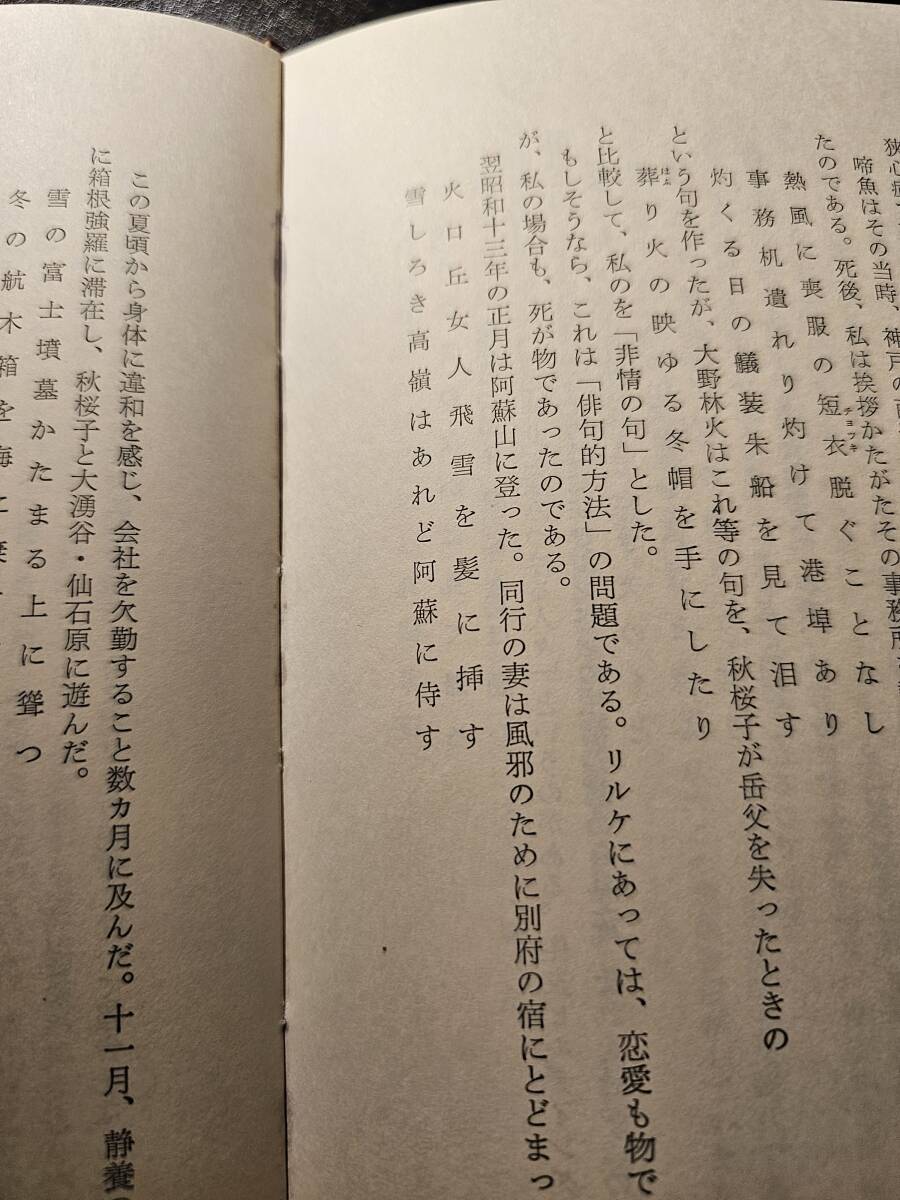 狭心症で
啼魚はその当時、神戸の
たのである。死後、私は挨拶かたがたその事務所
熱風に喪服の短衣脱ぐことなし
チョツキ
事務机遺れり灼けて港埠あり
灼くる日の艤装朱船を見て泪す
という句を作ったが、大野林火はこれ等の句を、秋桜子が岳父を失ったときの
葬り火の映ゆる冬帽を手にしたり
はふ
と比較して、私のを「非情の句」とした。
もしそうなら、これは「俳句的方法」の問題である。リルケにあっては、恋愛も物で
が、私の場合も、死が物であったのである。
翌昭和十三年の正月は阿蘇山に登った。同行の妻は風邪のために別府の宿にとどまっ
火口丘女人飛雪を髪に挿す
雪しろき高嶺はあれど阿蘇に侍す
この夏頃から身体に違和を感じ、会社を欠勤すること数カ月に及んだ。十一月、静養
に箱根強羅に滞在し、秋桜子と大湧谷・仙石原に遊んだ。
雪の富士墳墓かたまる上に聳つ
冬の航木箱を海に